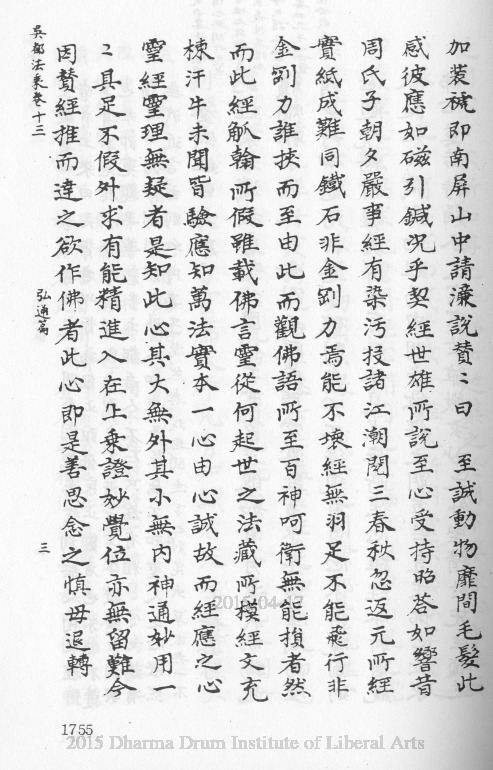 加裝褫即南屏山中請濂說贊〻曰　至誠動物靡間毛髮此
感彼應如磁引鍼况乎契經世雄所說至心受持昭荅如響昔
周氏子朝夕嚴事經有染汚投諸江潮閱三春秋忽返元所經
實紙成難同鐵石非金剛力焉能不壞經無羽足不能飛行非
金剛力誰挾而至由此而觀佛語所至百神呵衛無能損者然
而此經觚翰所假雖載佛言靈從何起世之法藏所模經文充
棟汗牛未聞皆驗應知萬法實本一心由心誠故而經應之心
靈經靈理無疑者是知此心其大無外其小無內神通妙用一
〻具足不假外求有能精進入在上乘證妙覺位亦無留難今
因贊經推而達之欲作佛者此心即是善思念之慎毋退轉
吳都法乘卷十三
弘通篇
三
2015/04/17
1755
2015 Dharma Drum Institute of Liberal Arts